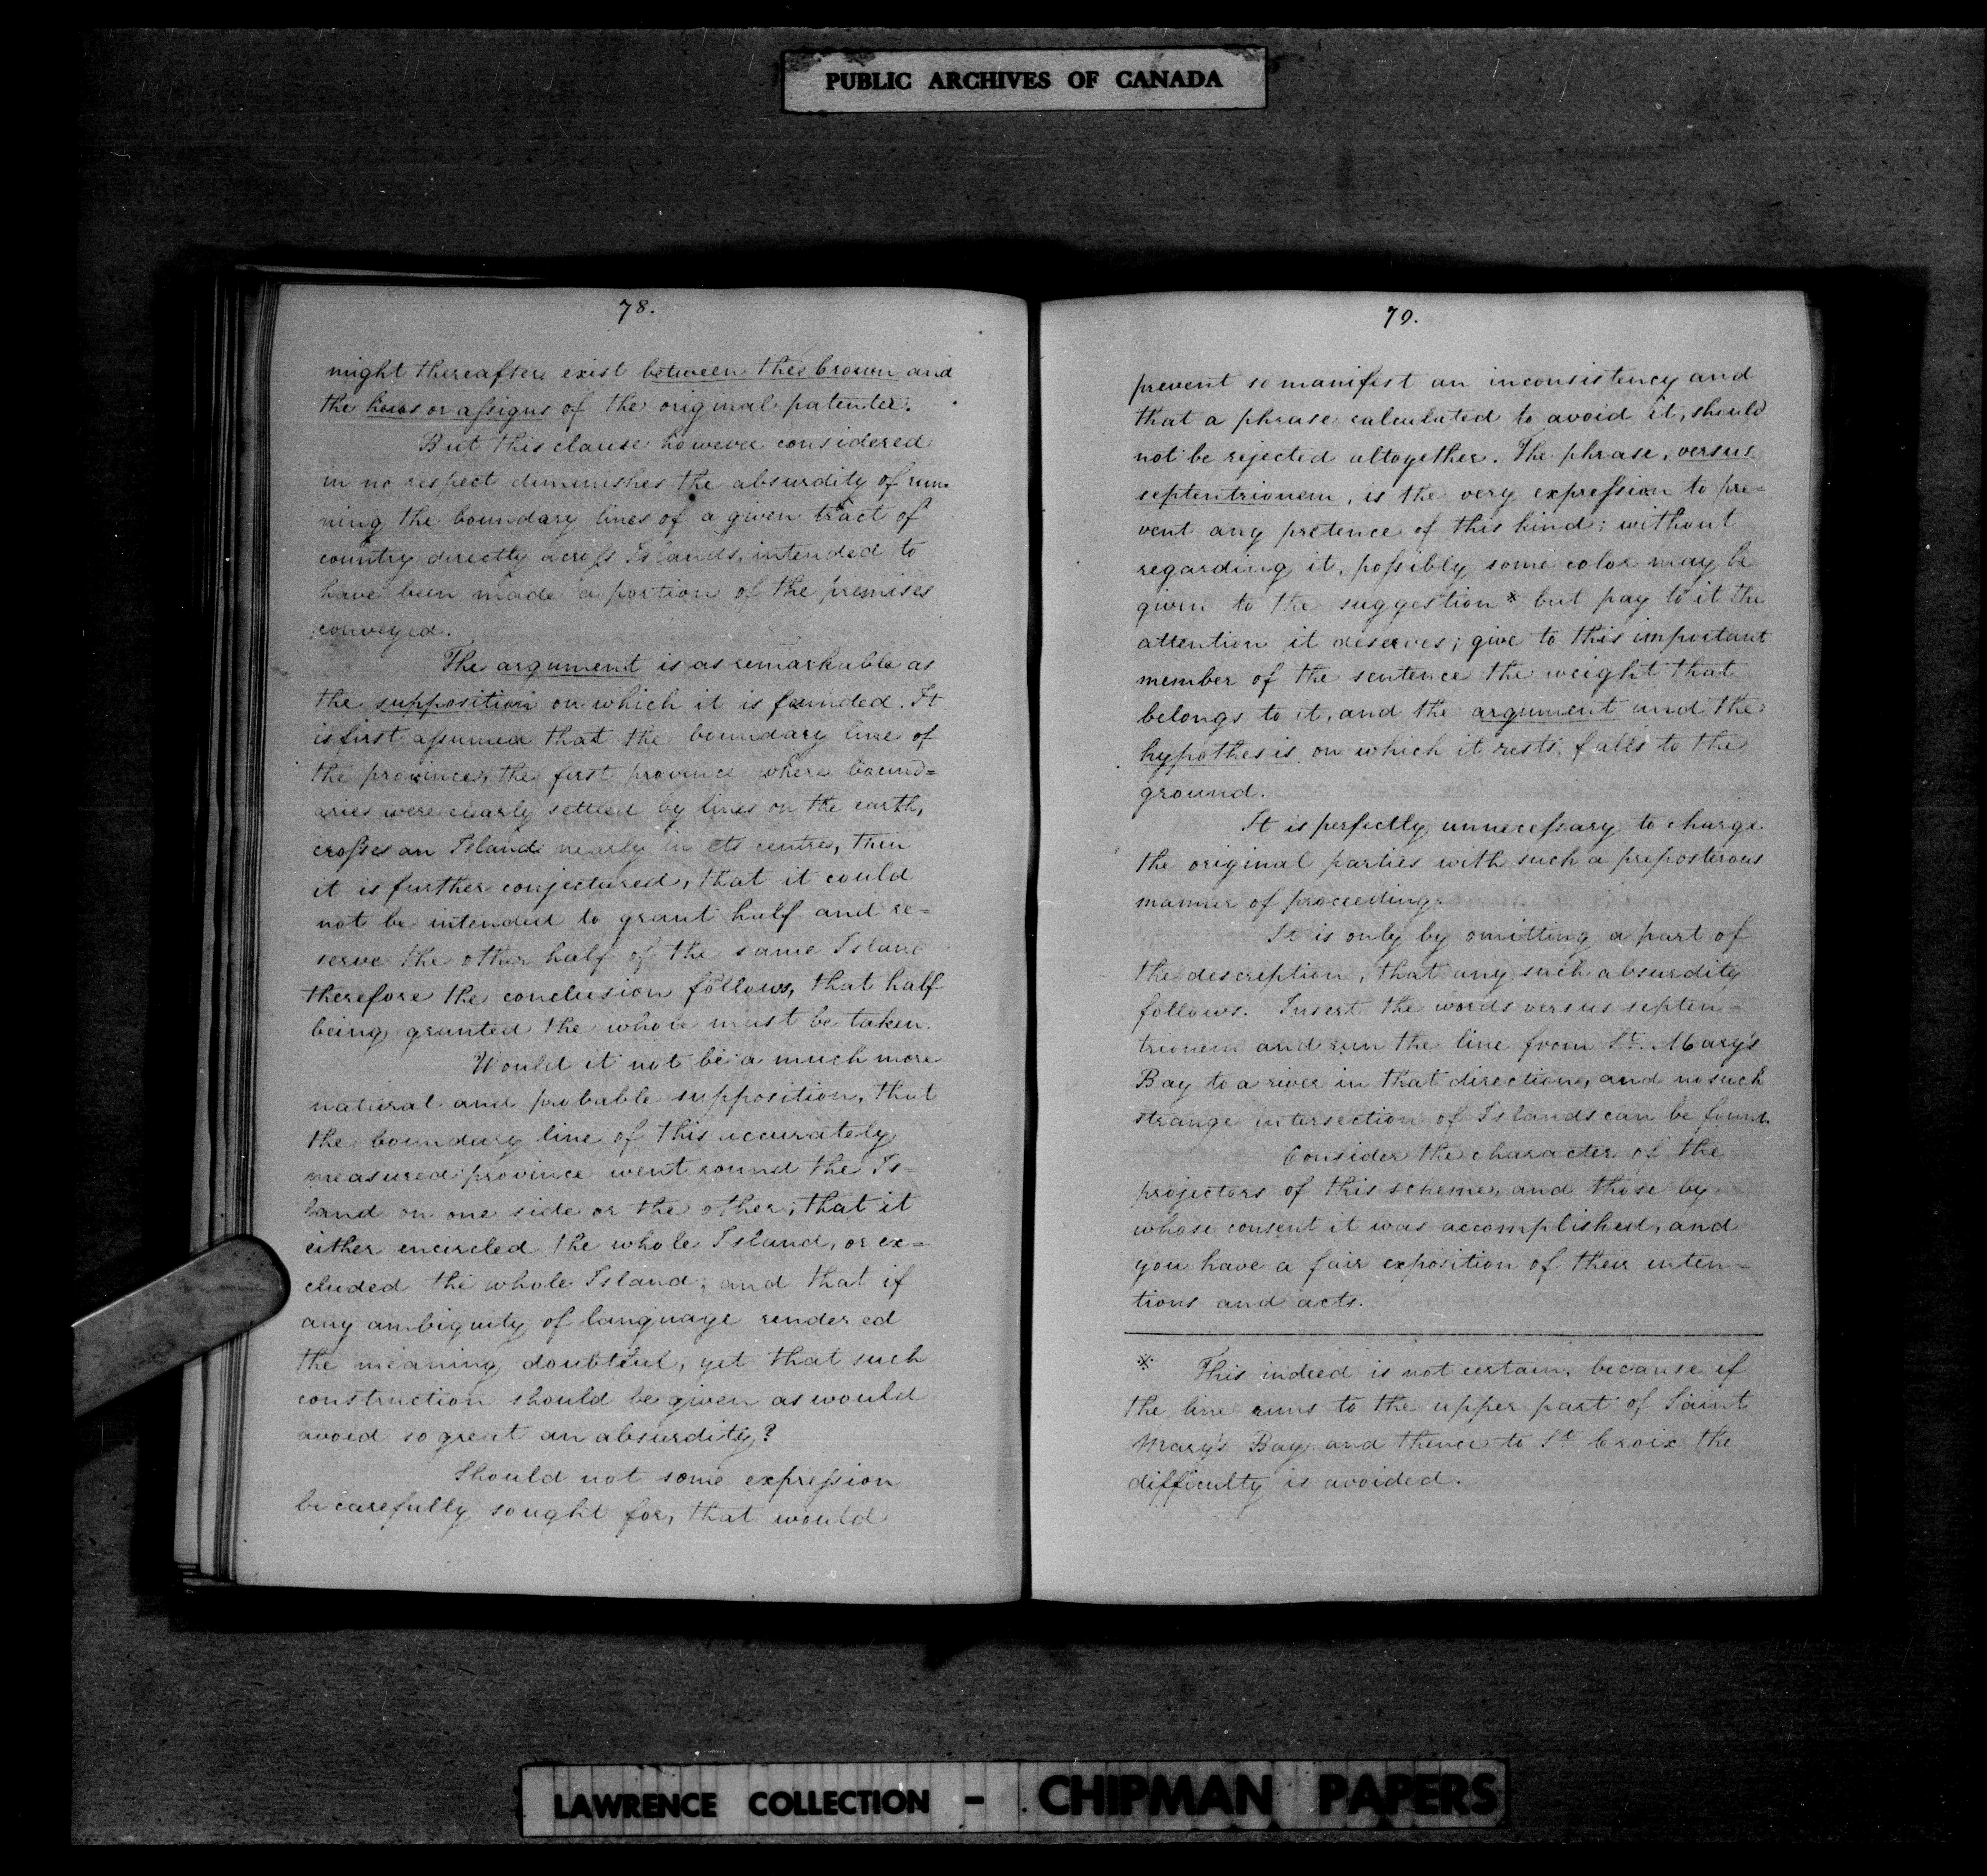 PUBLIC ARCHIVES OF CANADA
78.
might thereafter exist between the Crown and
the heirs or assigns of the original patentee.
But this clause however considered
in no respect diminishes the absurdity of run-
ning the boundary lines of a given tract of
country directly across Islands, intended to
have been made a portion of the premises
conveyed.
The argument is as remarkable as
the supposition on which it is founded. It
is first assumed that the boundary line of
the province, the first province where bound=
aries were clearly settled by lines on the earth,
crosses an Island nearly in its centre, then
it is further conjectured, that it could
not be intended to grant half and re=
serve the other half of the same Island
therefore the conclusion follows, that half
being granted the whole must be taken.
Would it not be a much more
natural and probable supposition, that
the boundary line of this accurately
measured province went round the Is=
land on one side or the other; that it
either encircled the whole Island, or ex=
cluded the whole Island; and that if
any ambiguity of language rendered
the meaning doubtful, yet that such
construction should be given as would
avoid so great an absurdity?
Should not some expression
be carefully sought for, that would
79.
prevent so manifest an inconsistency and
that a phrase calculated to avoid it, should
not be rejected altogether. The phrase, versus
septentrionem, is the very expression to pre=
vent any pretence of this kind; without
regarding it, possibly some color may be
given to the suggestion * but pay to it the
attention it deserves; give to this important
member of the sentence the weight that
belongs to it, and the argument and the
hypothesis on which it rests, falls to the
ground.
It is perfectly unnecessary to charge
the original parties with such a preposterous
manner of proceeding.
It is only by omitting a part of
the description, that any such absurdity
follows. Insert the words versus septen=
trionem and run the line from St. Mary's
Bay to a river in that direction, and no such
strange intersection of Islands can be found.
Consider the character of the
projectors of this scheme, and those by
whose consent it was accomplished, and
you have a fair exposition of their inten=
tions and acts.
* This indeed is not certain, because if
the line runs to the upper part of Saint
Mary's Bay and thence to St. Croix the
difficulty is avoided.
LAWRENCE COLLECTION - CHIPMAN PAPERS